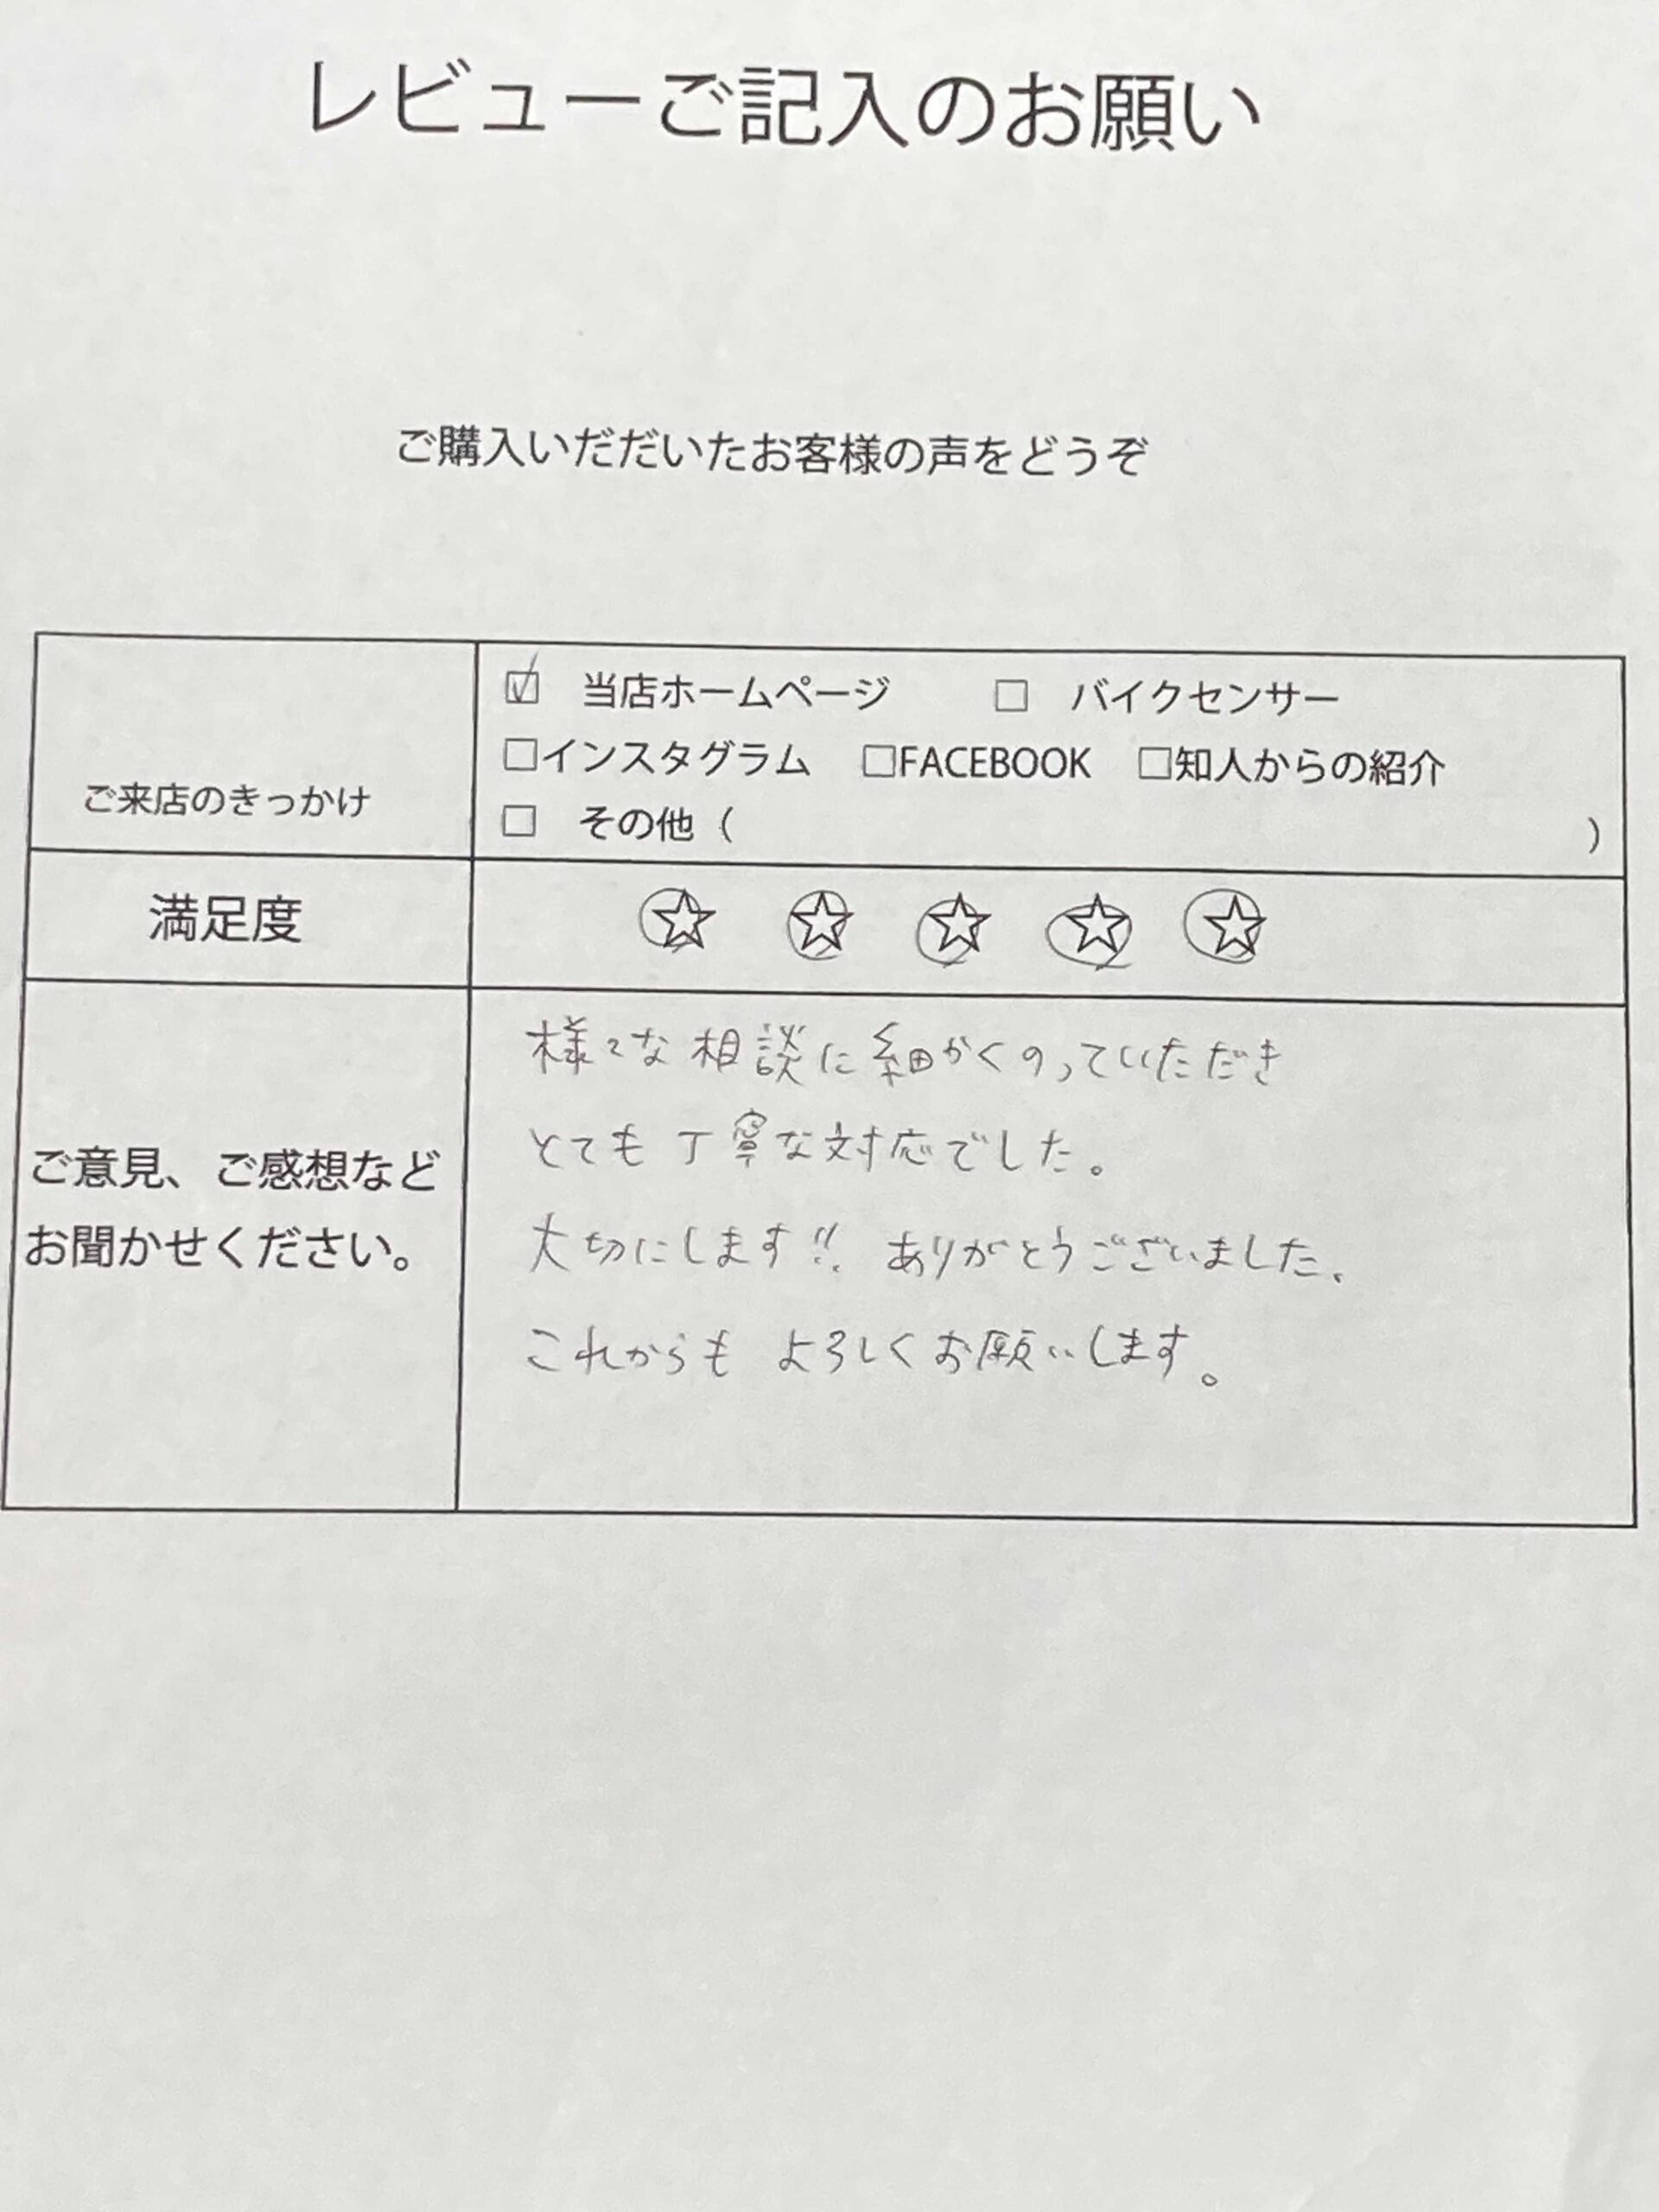 レビューご記入のお願い
ご購入いだだいたお客様の声をどうぞ
ご来店のきっかけ
☑ 当店ホームページ □ バイクセンサー
□インスタグラム □FACEBOOK □知人からの紹介
□ その他（ ）
満足度
☆ ☆ ☆ ☆ ☆
ご意見、ご感想など
お聞かせください。
様々な相談に細かくのっていただき
とても丁寧な対応でした。
大切にします!! ありがとうございました、
これからも よろしくお願いします。